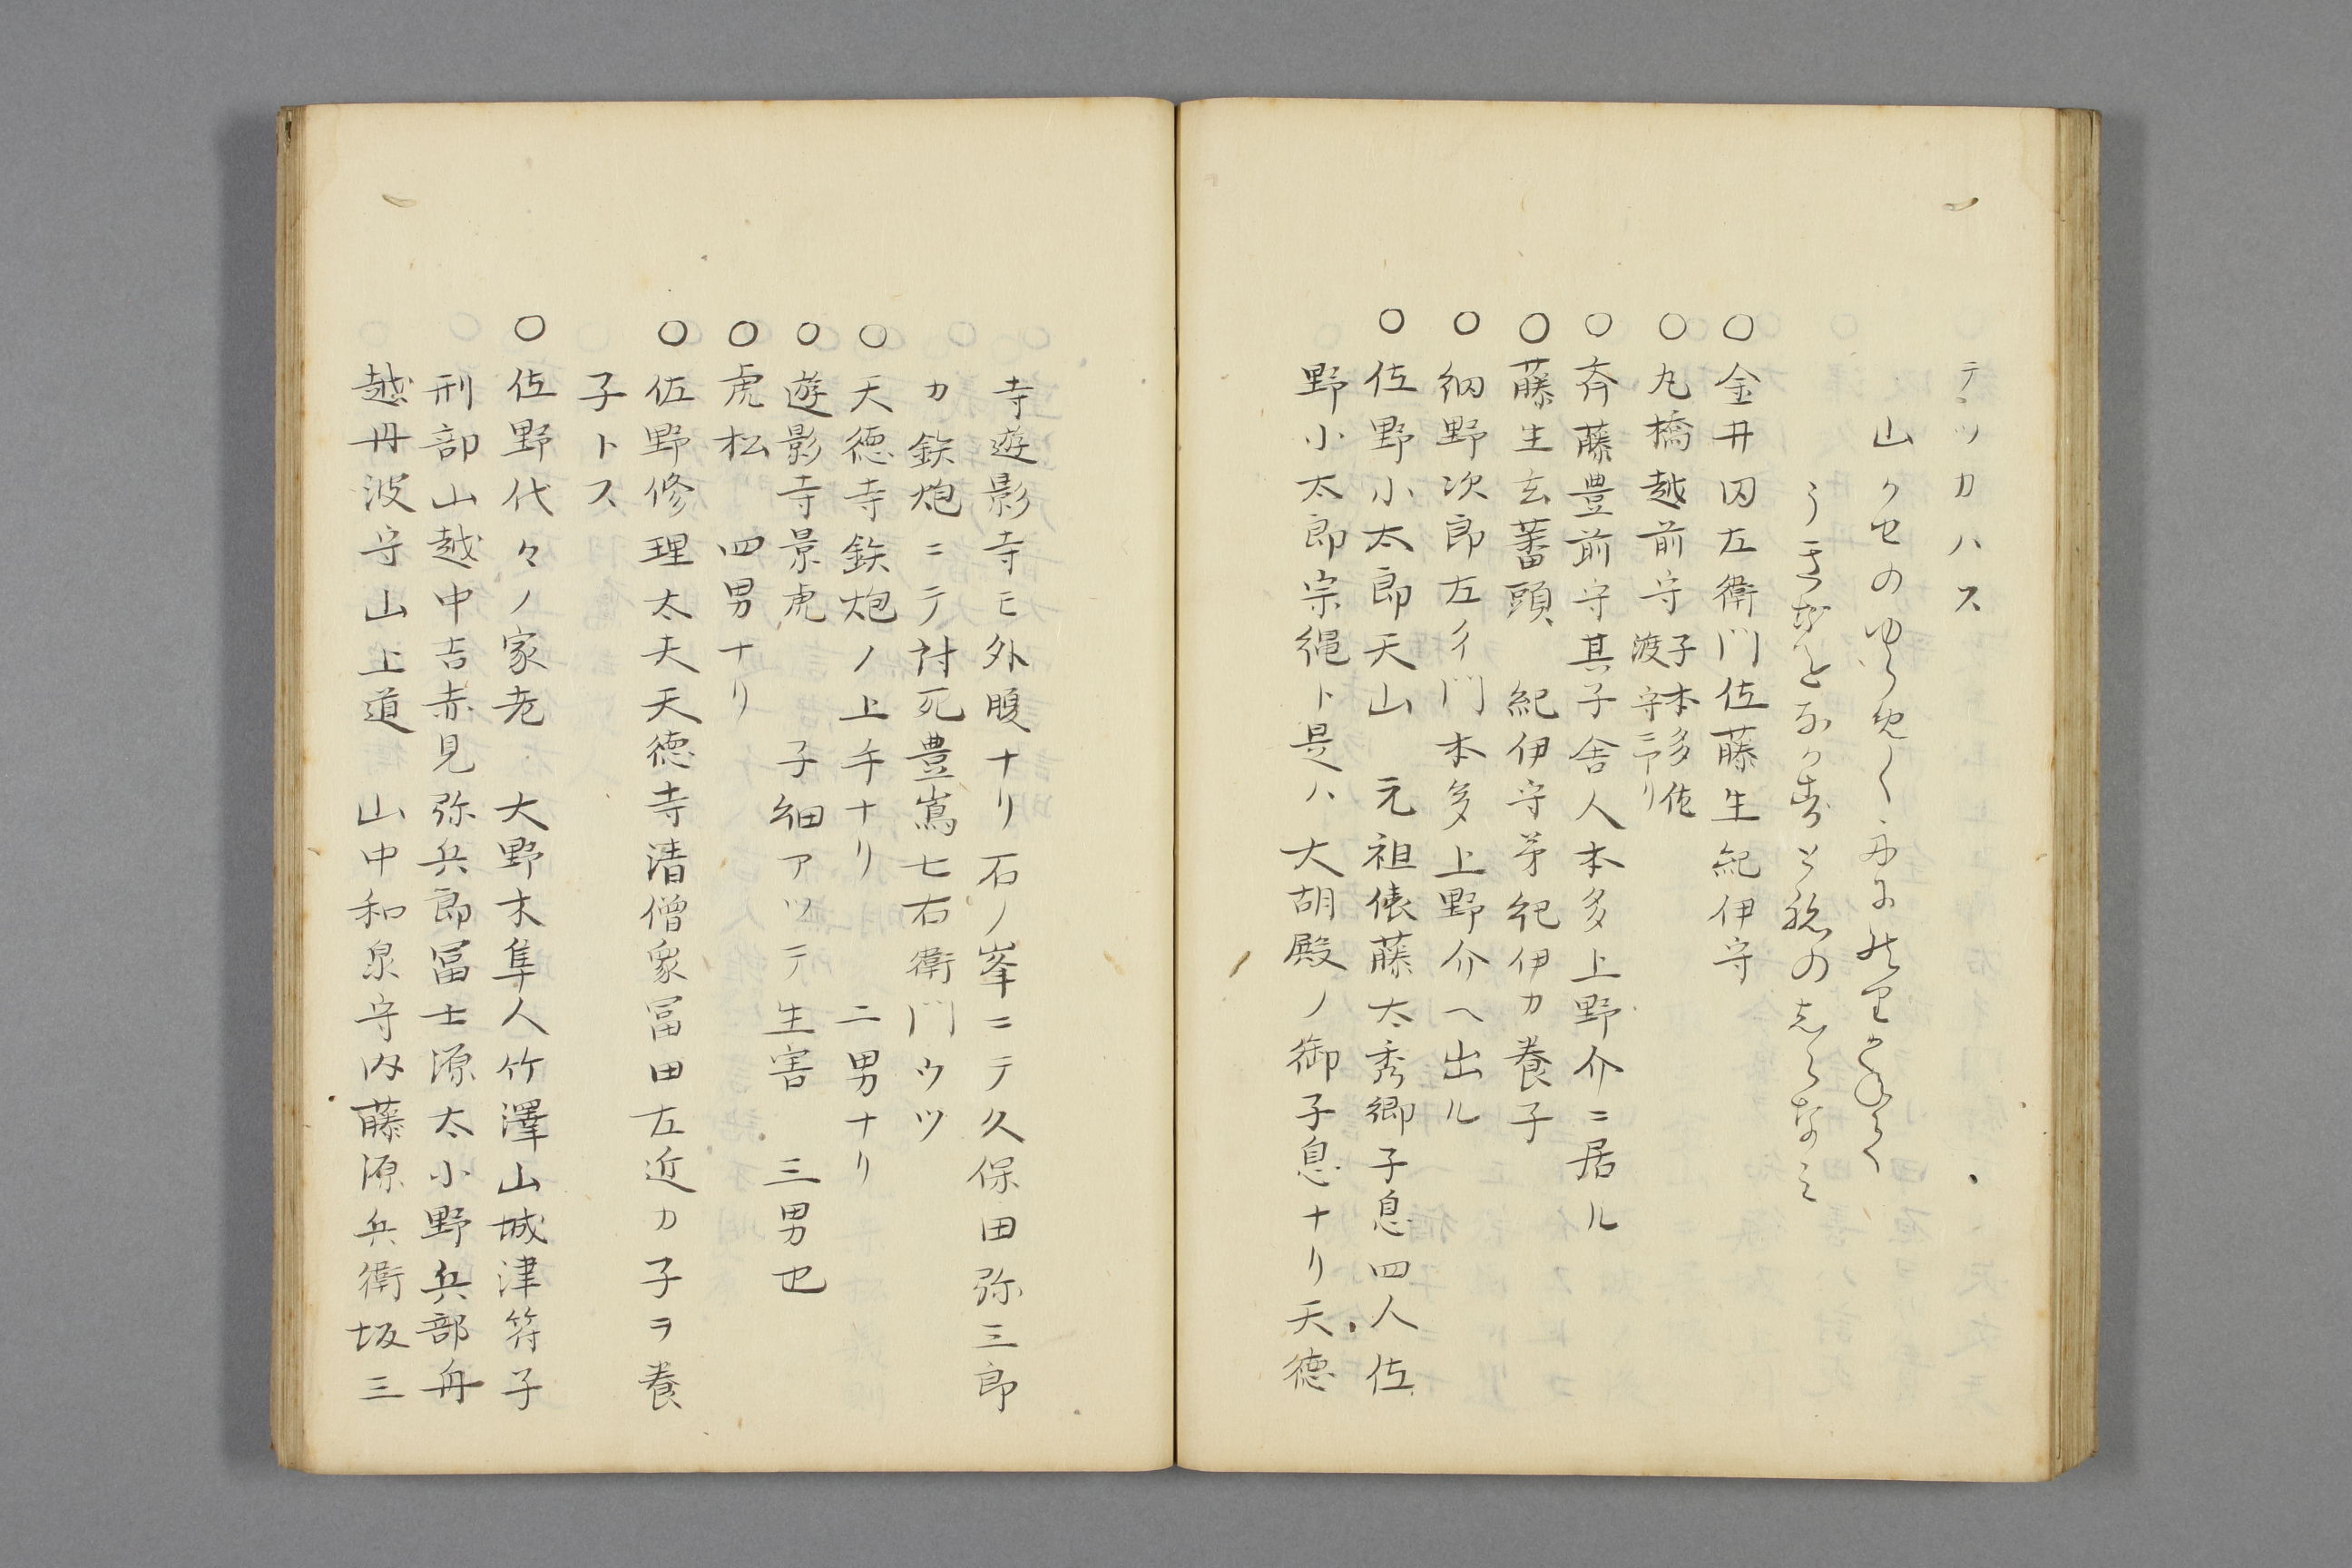 テツカハス
山かせの
うき
○金井囚左衛門佐藤生紀伊守
○丸橋越前守 子本多佐渡守ニアリ
○斉藤豊前守其子舎人本多上野介ニ居ル
○藤生玄蕃頭 紀伊守弟紀伊カ養子
○細野次郎左エ門本多上野介ヘ出ル
○佐野小太郎天山 元祖俵藤太秀郷子息四人佐
野小太郎宗縄ト是ハ大胡殿ノ御子息ナリ天徳
寺遊影寺モ外腹ナリ石ノ峯ニテ久保田弥三郎
カ鉄炮ニテ討死豊嶌七右衛門ウツ
○天徳寺鉄炮ノ上手ナリ 二男ナリ
○遊影寺景虎 子細アツテ生害 三男也
○虎松 四男ナリ
○佐野修理太夫天徳寺清僧象冨田左近カ子ヲ養
子トス
○佐野代々ノ家老 大野木隼人竹澤山城津符子
刑部山越中吉赤見弥兵郎冨士源太小野兵部舟
越丹波守山上道 山中和泉守内藤源兵衛坂三